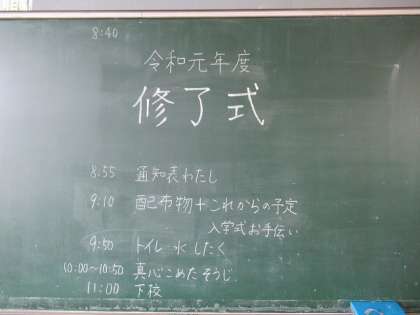 8:40
令和元年度
修了式
8:55 通知表わたし
9:10 配布物+これからの予定
入学式お手伝い
9:50 トイレ 水 したく
10:00~10:50 真心こめたそうじ
11:00 下校